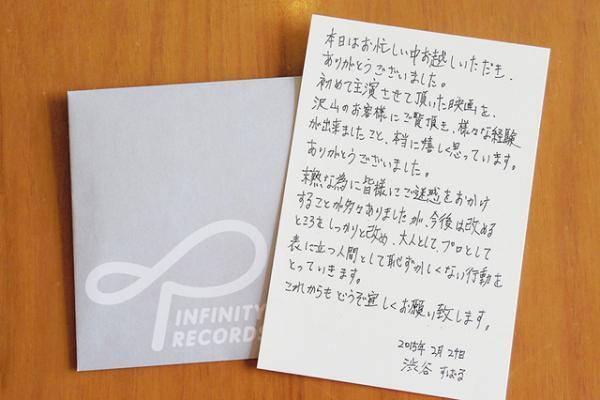 本日はお忙しい中お越しいただき、
ありがとうございました。
初めて主演させて頂いた映画を、
沢山のお客様にご覧頂き、様々な経験
が出来ましたこと、本当に嬉しく思っています。
ありがとうございました。
未熟な為に皆様にご迷惑をおかけ
することが多々ありましたが、今後は改める
ところをしっかりと改め、大人として、プロとして
表に立つ人間として恥ずかしくない行動を
とっていきます。
これからもどうぞ宜しくお願い致します。
2015年 2月 27日
渋谷 すばる
INFINITY
RECORDS